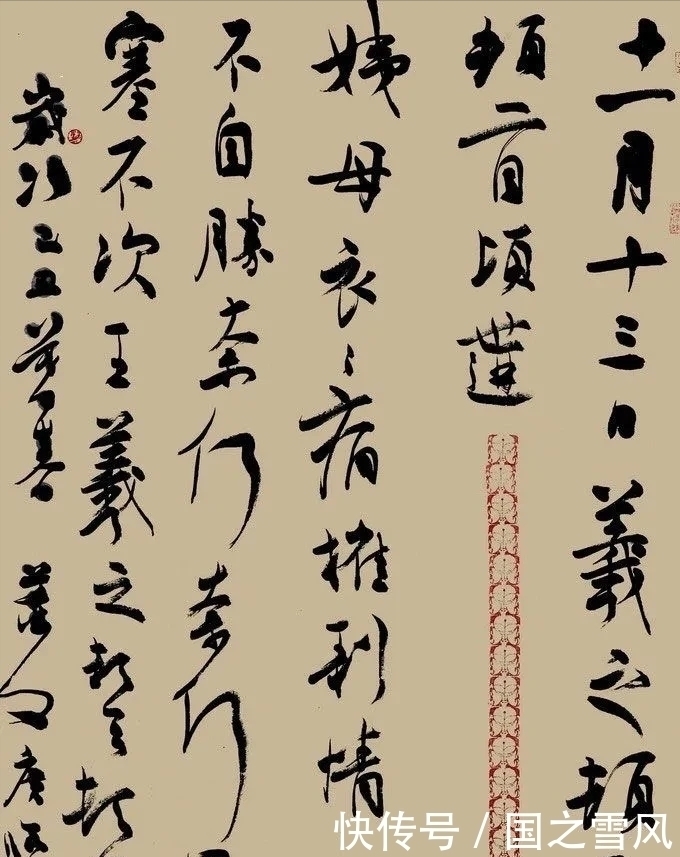 十一月十三日羲之頓
頓首頃遘
姨母哀々痛摧剝情
不自勝奈何奈何
塞不次王羲之頓首頓
歲次乙丑
快传号 / 国之雪风